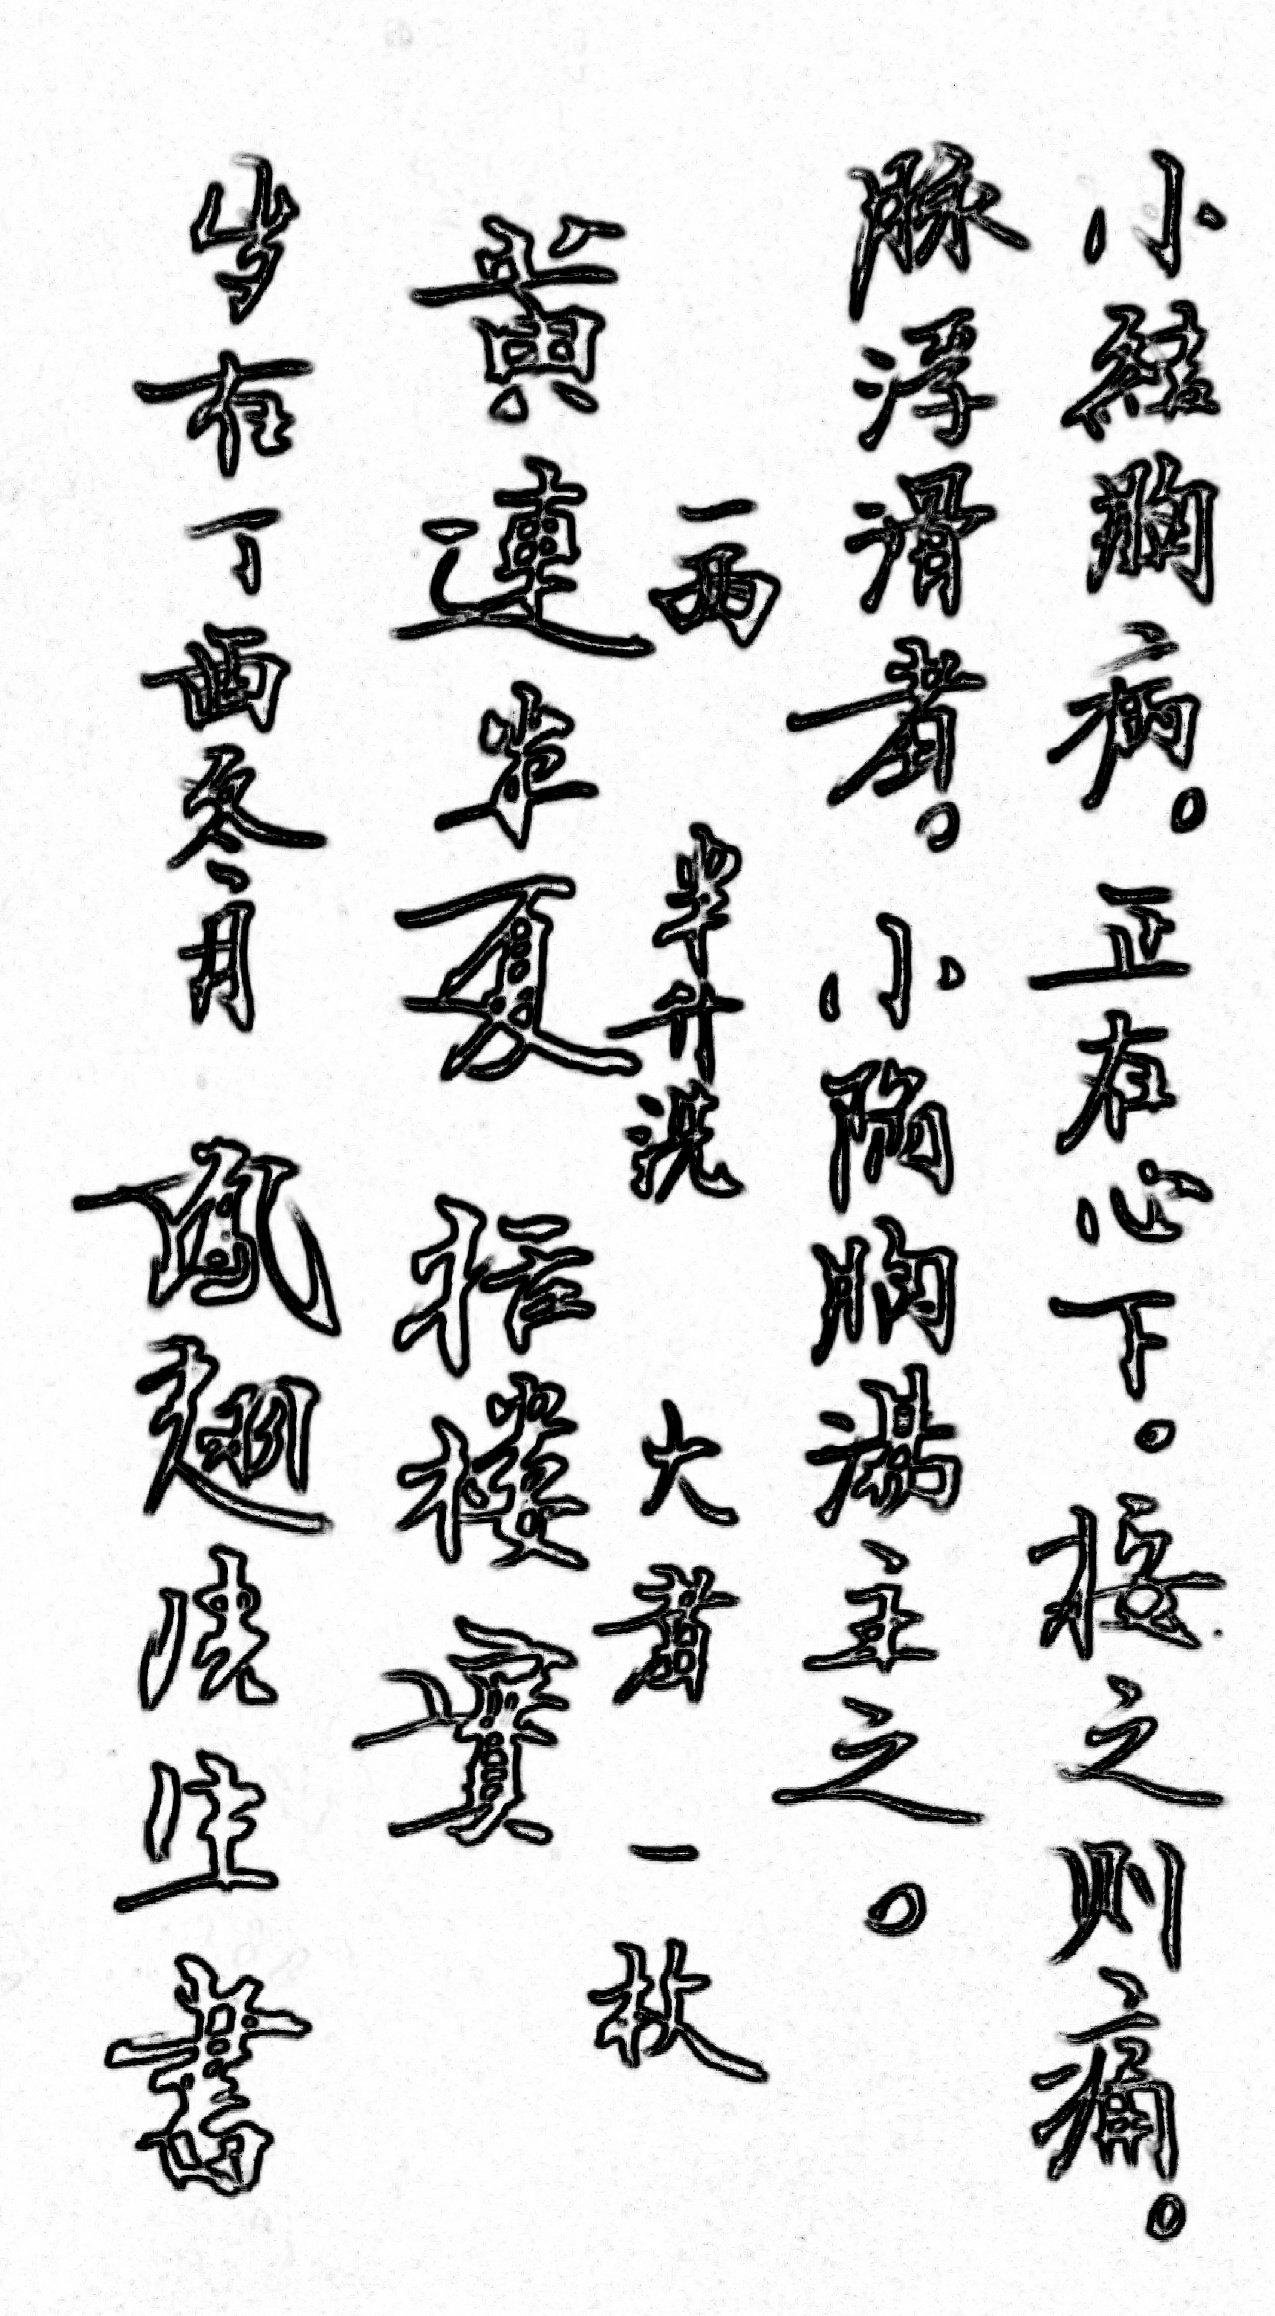 小結胸病。正在心下。按之则痛。
脉浮滑者。小陷胸湯主之。
一两 半升洗 大者一枚
黃連 半夏 栝樓實
岁在丁酉冬月 書